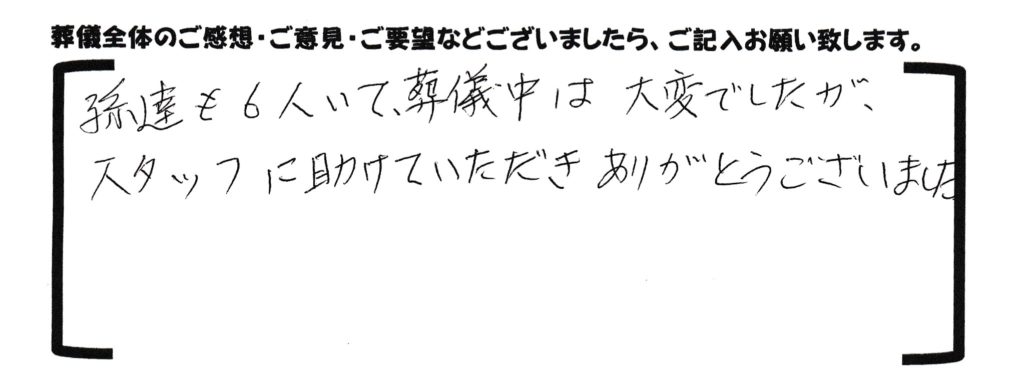 葬儀全体のご感想・ご意見・ご要望などございましたら、ご記入お願い致します。
孫達も6人いて、葬儀中は 大変でしたが、
スタッフに助けていただき ありがとうございました